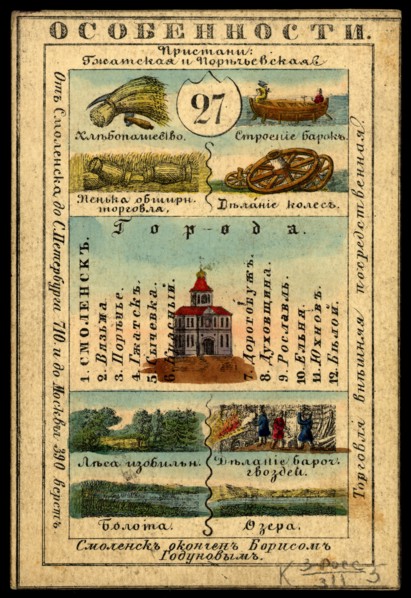 ОСОБЕННОСТИ.
Пристани:
Гжатская и Порѣчьевская.
27
Хлѣбопашество.
Строеніе барокъ.
Пенька обширн.
торговля.
Дѣланіе колесъ.
Отъ Смоленска до С.Петербурга 710. и до Москвы 390 верстъ
Города.
1. СМОЛЕНСКЪ.
2. Вязьма.
3. Порѣчье.
4. Гжатскъ.
5. Сычевка.
6.
7. Дорогобужъ.
8. Духовщина.
9. Рославль.
10. Ельня.
11. Юхновъ.
12. Бѣлой.
Торговля внѣшняя посредственная.
Лѣса изобильн.
Дѣланіе бароч.
гвоздей.
Болота.
Озера.
Смоленскъ оконченъ Борисомъ
Годуновымъ.
К 3-Росс
311 3